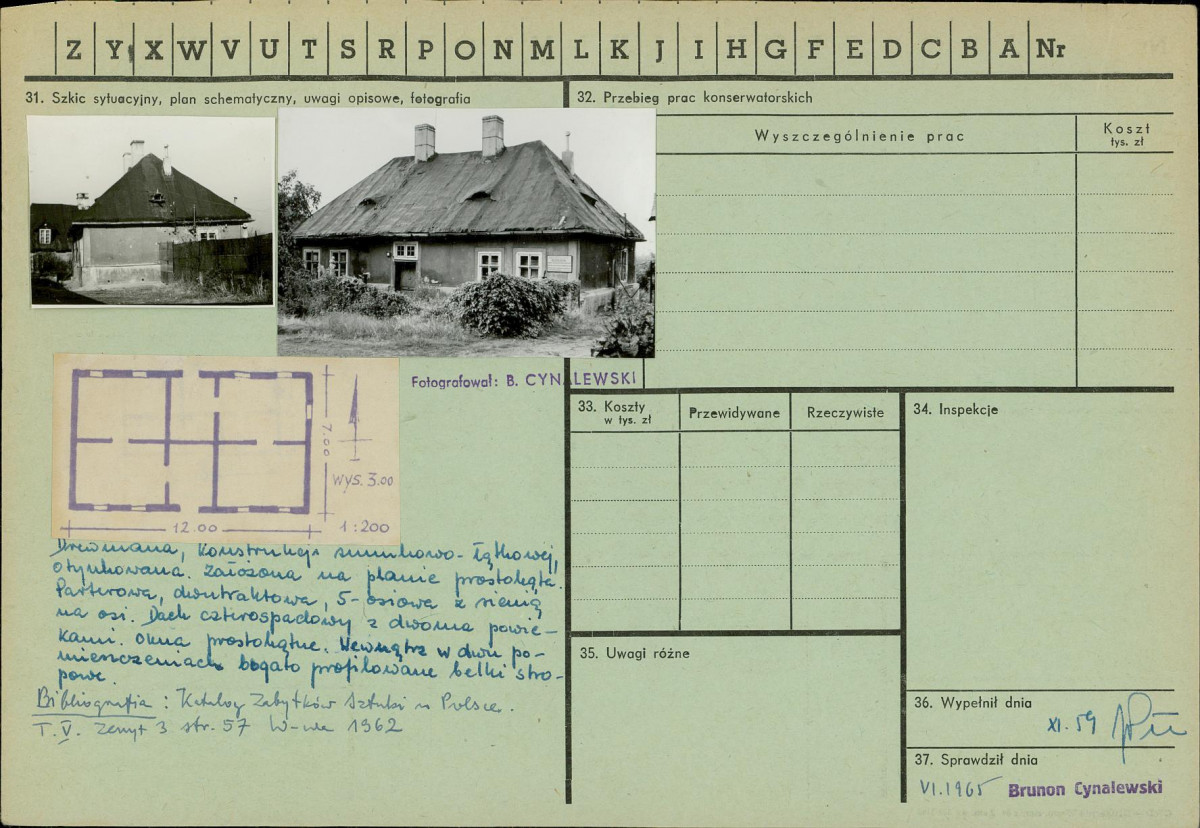 Z Y X W V U T S R P O N M L K J I H G F E D C B A Nr
31. Szkic sytuacyjny, plan schematyczny, uwagi opisowe, fotografia
Fotografował: B. CYNALEWSKI
7.00
WYS. 3.00
12.00
1:200
Drewniana, konstrukcji sumikowo-łątkowej,
otynkowana. Założona na planie prostokąta.
Parterowa, dwutraktowa, 5-osiowa z sienią
na osi. Dach czterospadowy z dwoma powie-
kami. Okna prostokątne. Wewnątrz w dwu po-
mieszczeniach bogato profilowane belki stro-
powe.
Bibliografia: Katalog Zabytków Sztuki w Polsce.
T. V. Zeszyt 3 str. 57 W-wa 1962
32. Przebieg prac konserwatorskich
Wyszczególnienie prac
Koszt
tys. zł
33. Koszty
w tys. zł
Przewidywane
Rzeczywiste
34. Inspekcje
35. Uwagi różne
36. Wypełnił dnia
XI. 59
37. Sprawdził dnia
VI.1965 Brunon Cynalewski